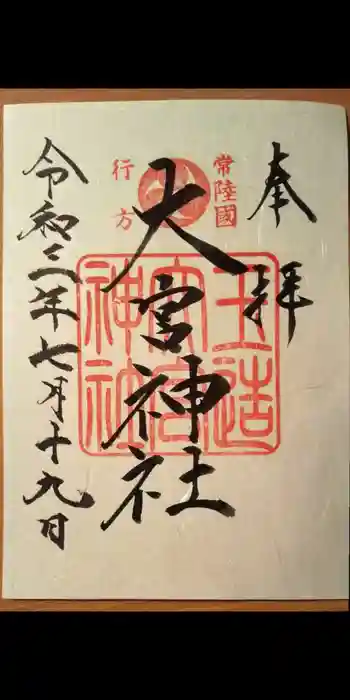 奉拝
常陸國
行方
大宮神社
玉造
大宮
神社
令和三年七月十九日